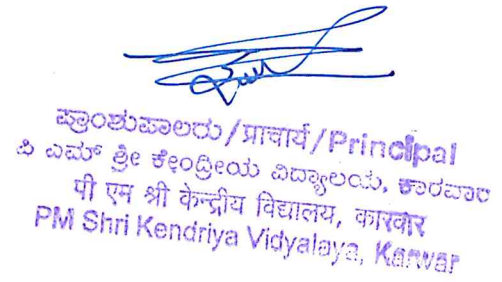 ಪ್ರಾಂಶುಪಾಲರು/प्राचार्य/Principal
ಪಿ ಎಮ್ ಶ್ರೀ ಕೇಂದ್ರೀಯ ವಿದ್ಯಾಲಯ, ಕಾರವಾರ
पी एम श्री केन्द्रीय विद्यालय, कारवार
PM Shri Kendriya Vidyalaya, Karwar